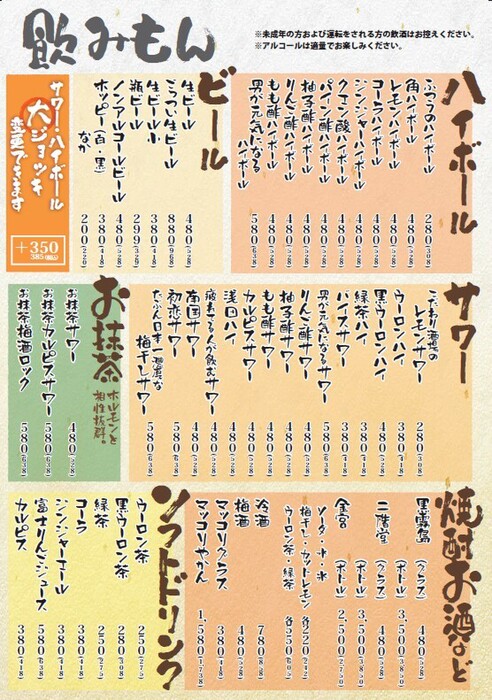 飲みもん
※未成年の方および運転をされる方の飲酒はお控えください。
※アルコールは適量でお楽しみください。
ハイボール
ふつうのハイボール 280(308)
角ハイボール 480(528)
レモンハイボール 480(528)
コーラハイボール 480(528)
ジンジャーハイボール 480(528)
クエン酸ハイボール 480(528)
パイン酢ハイボール 480(528)
柚子酢ハイボール 480(528)
りんご酢ハイボール 480(528)
もも酢ハイボール 480(528)
男が元気になる
ハイボール 580(638)
ビール
生ビール 480(528)
ごっつい生ビール 880(968)
生ビール小 380(418)
瓶ビール 299(326)
ノンアルコールビール 480(528)
ホッピー(白・黒) 380(418)
なか 200(220)
サワー・ハイボール
大ジョッキ
変更できます
+350
385(税込)
サワー
こだわり酒場の
レモンサワー 280(308)
ウーロンハイ 380(418)
黒ウーロンハイ 480(528)
緑茶ハイ 380(418)
バイスサワー 480(528)
男が元気になるサワー 580(638)
りんご酢サワー 480(528)
柚子酢サワー 480(528)
もも酢サワー 480(528)
カルピスサワー 480(528)
浅田ハイ 480(528)
疲れてる人が飲むサワー 480(528)
南国サワー 480(528)
初恋サワー 580(638)
たぶん日本一濃厚な
梅干しサワー 580(638)
お抹茶
ホルモンと
相性抜群。
お抹茶サワー 480(528)
お抹茶カルピスサワー 580(638)
お抹茶梅酒ロック 580(638)
焼酎お酒など
黒霧島 (グラス) 480(528)
(ボトル) 3,500(3,850)
二階堂 (グラス) 480(528)
(ボトル) 3,500(3,850)
金宮 (ボトル) 2,500(2,750)
ソーダ・水・氷
梅干し・カットレモン 各250(275)
ウーロン茶・緑茶 各550(605)
冷酒 780(858)
梅酒 480(528)
マッコリグラス 380(418)
マッコリやかん 1,580(1,738)
ソフトドリンク
ウーロン茶 250(275)
黒ウーロン茶 280(308)
緑茶 250(275)
コーラ 380(418)
ジンジャーエール 380(418)
富士りんごジュース 580(638)
カルピス 380(418)